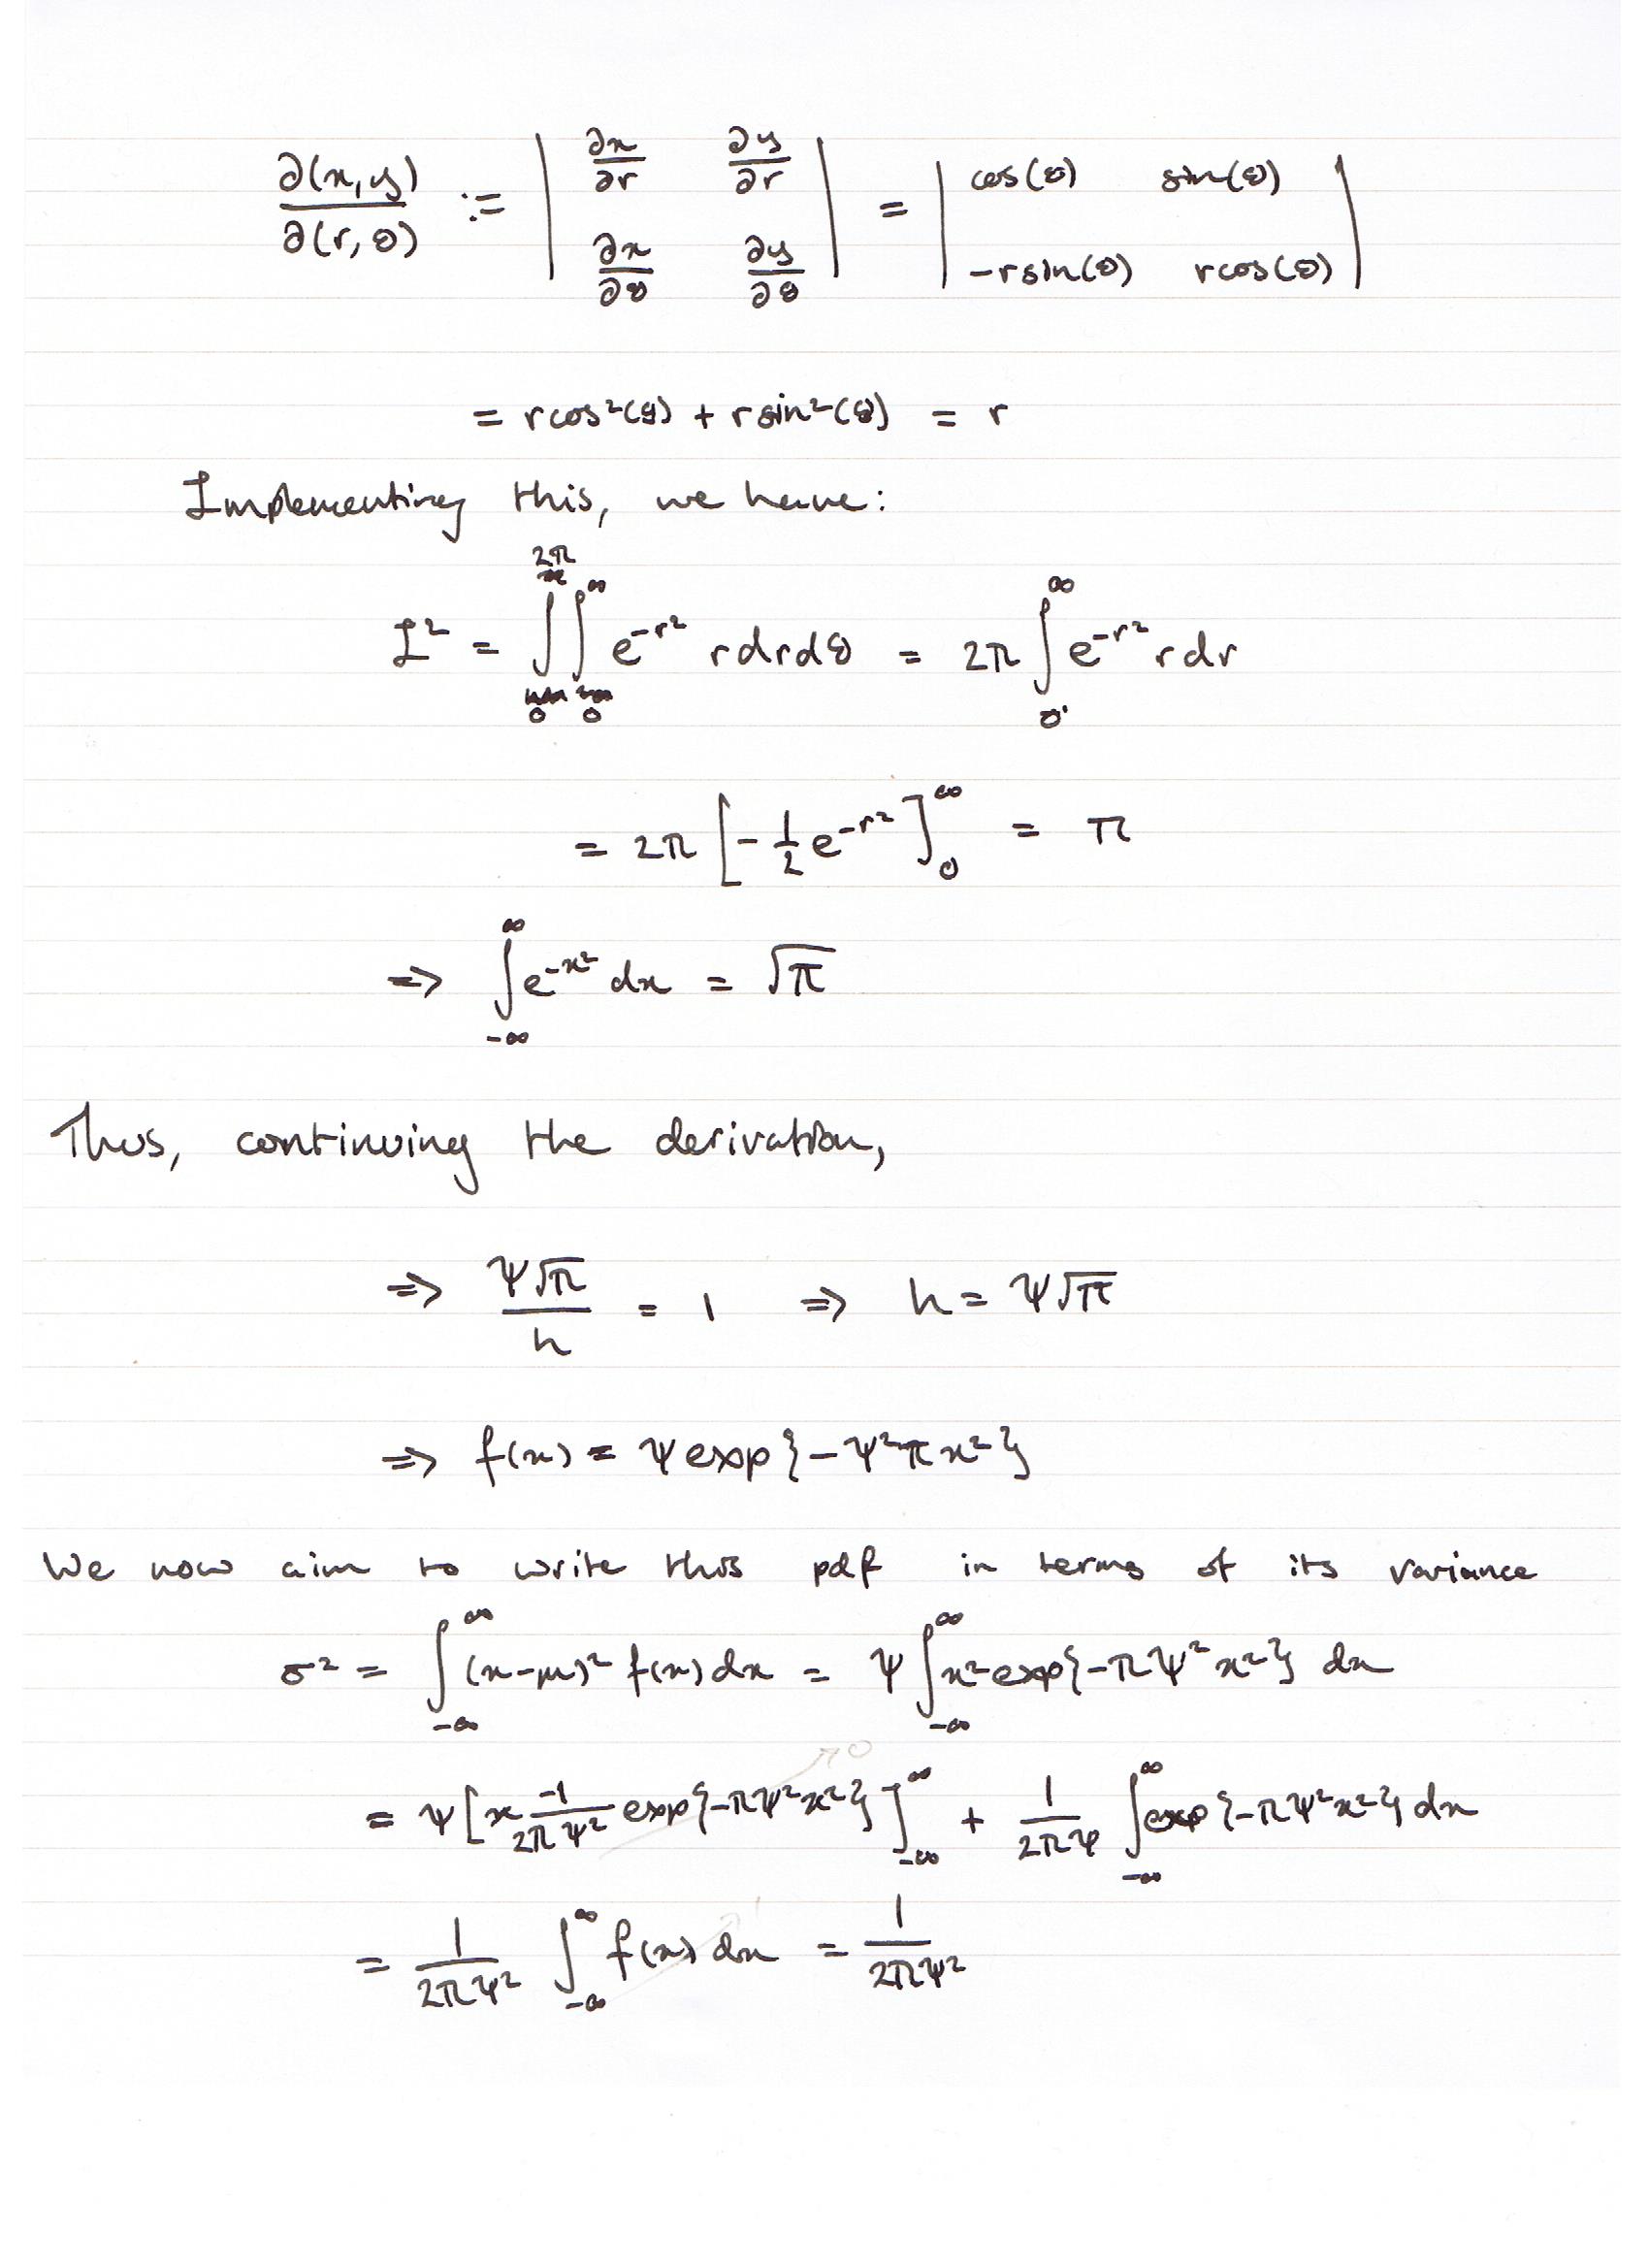 ∂(x,y)/∂(r,θ) := | ∂x/∂r ∂y/∂r ; ∂x/∂θ ∂y/∂θ | = | cos(θ) sin(θ) ; -rsin(θ) rcos(θ) |
= rcos²(θ) + rsin²(θ) = r
Implementing this, we have:
I² = ∫₀^2π ∫₀^∞ e^-r² rdrdθ = 2π ∫₀^∞ e^-r² rdr
= 2π [-1/2 e^-r²]₀^∞ = π
=> ∫_-∞^∞ e^-x² dx = √π
Thus, continuing the derivation,
=> ψ√π/h = 1 => h = ψ√π
=> f(x) = ψ exp{-ψ²πx²}
We now aim to write this pdf in terms of its variance
σ² = ∫_-∞^∞ (x-μ)² f(x) dx = ψ ∫_-∞^∞ x² exp{-πψ²x²} dx
= ψ [x -1/2πψ² exp{-πψ²x²}]_-∞^∞ →0 + 1/2πψ ∫_-∞^∞ exp{-πψ²x²} dx
= 1/2πψ² ∫_-∞^∞ f(x) dx →1 = 1/2πψ²